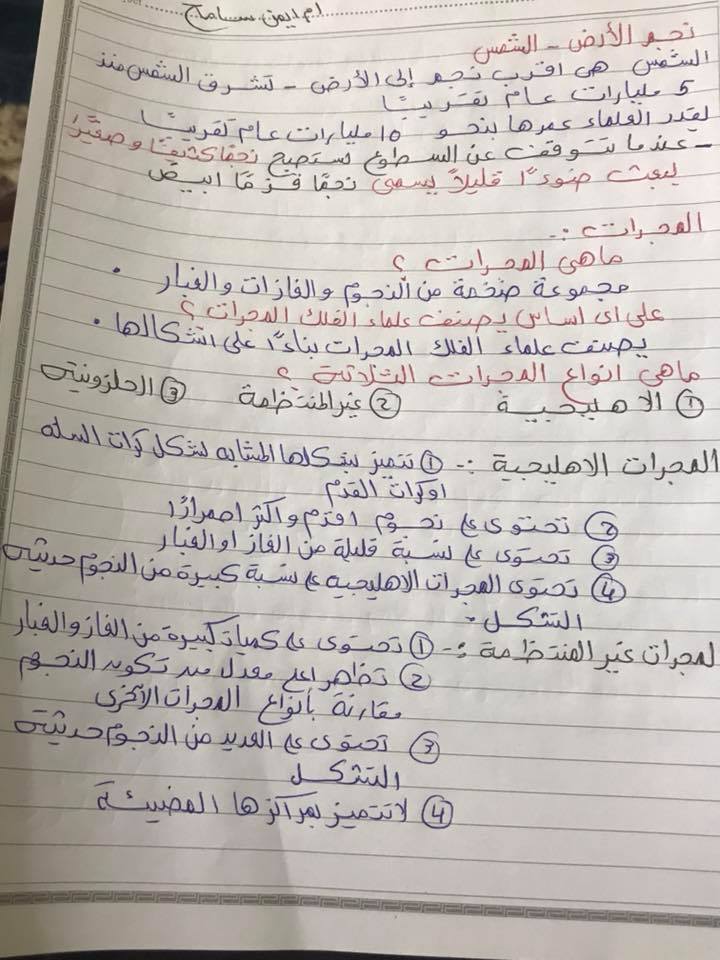 ام ايمن سامح
نجم الأرض - الشمس
الشمس هي اقرب نجم إلى الأرض - تشرق الشمس منذ
5 مليارات عام تقريبًا
يقدر العلماء عمرها بنحو 10 مليارات عام تقريبًا
- عندما تتوقف عن السطوع تستصبح نجمًا كثيفًا وصغيرًا
يبعث ضوءًا قليلاً يسمى نجمًا قزمًا ابيض
المجرات :-
ماهى المجرات ؟
مجموعة ضخمة من النجوم والغازات والغبار .
على اى اساس يصنف علماء الفلك المجرات ؟
يصنف علماء الفلك المجرات بناءًا على اشكالها .
ماهى انواع المجرات الثلاثة ؟
① الاهليجية ② غير المنتظمة ③ الحلزونية
المجرات الاهليجية :- ① تتميز بشكلها المشابه لشكل كرات السله
اوكرات القدم
② تحتوى على نجوم اقدم واكثر اصفرارًا
③ تحتوى على نسبة قليلة من الغاز او الغبار
④ تحتوى المجرات الاهليجيه على نسبة كبيرة من النجوم حديثة
التشكل .
لمجرات غير المنتظمة :- ① تحتوى على كميات كبيرة من الغاز والغبار
② تظهر اعلى معدل من تكوين النجوم
مقارنة بأنواع المجرات الأخرى
③ تحتوى على العديد من النجوم حديثة
التشكل
④ لا تتميز بمراكزها المضيئة